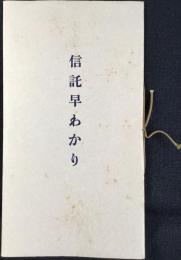 信託早わかり